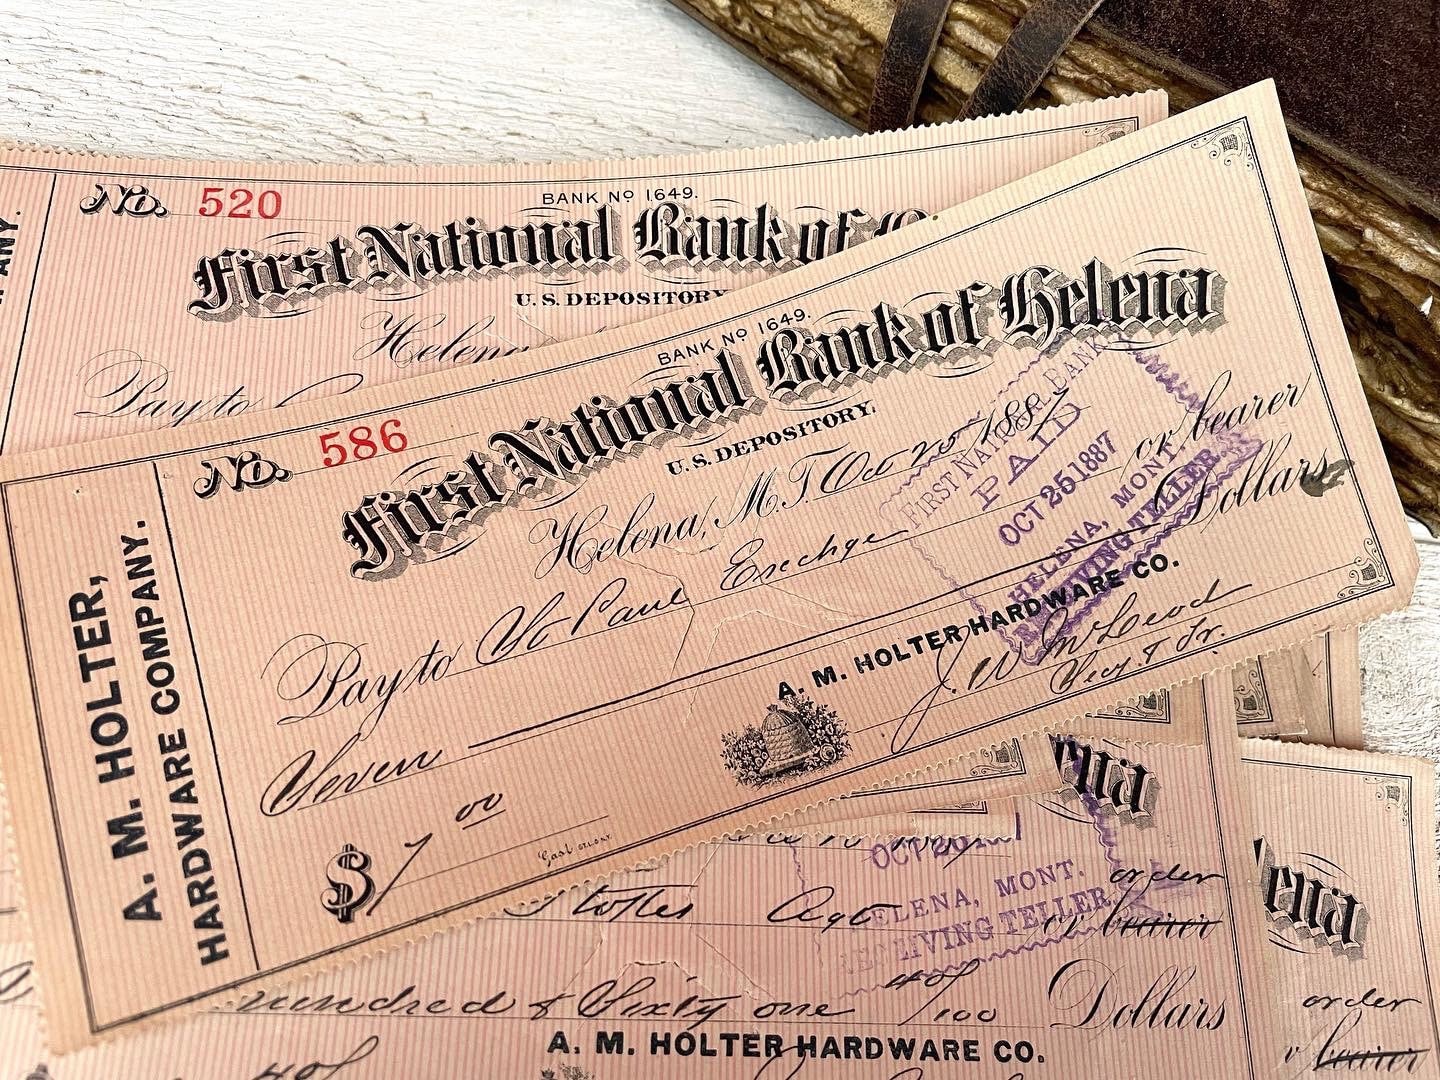 ANY.
No. 520
BANK No 1649.
First National Bank of
U.S. DEPOSITORY
Helena
Pay to
A. M. HOLTER,
HARDWARE COMPANY.
No. 586
BANK No 1649.
First National Bank of Helena
U.S. DEPOSITORY.
Helena, M.T. Oct 25 1887
Pay to St Paul Exchge or bearer
Seven Dollars
A. M. HOLTER HARDWARE CO.
J. W. McLeod
Secy & Tr.
$ 7 00
FIRST NATIONAL BANK
PAID
OCT 25 1887
HELENA, MONT.
RECEIVING TELLER.
ena
OCT
ELENA, MONT.
RECEIVING TELLER.
Agt order
or bearer
hundred & Sixty one 40/100 Dollars
A. M. HOLTER HARDWARE CO.
40/
ena
order
bearer